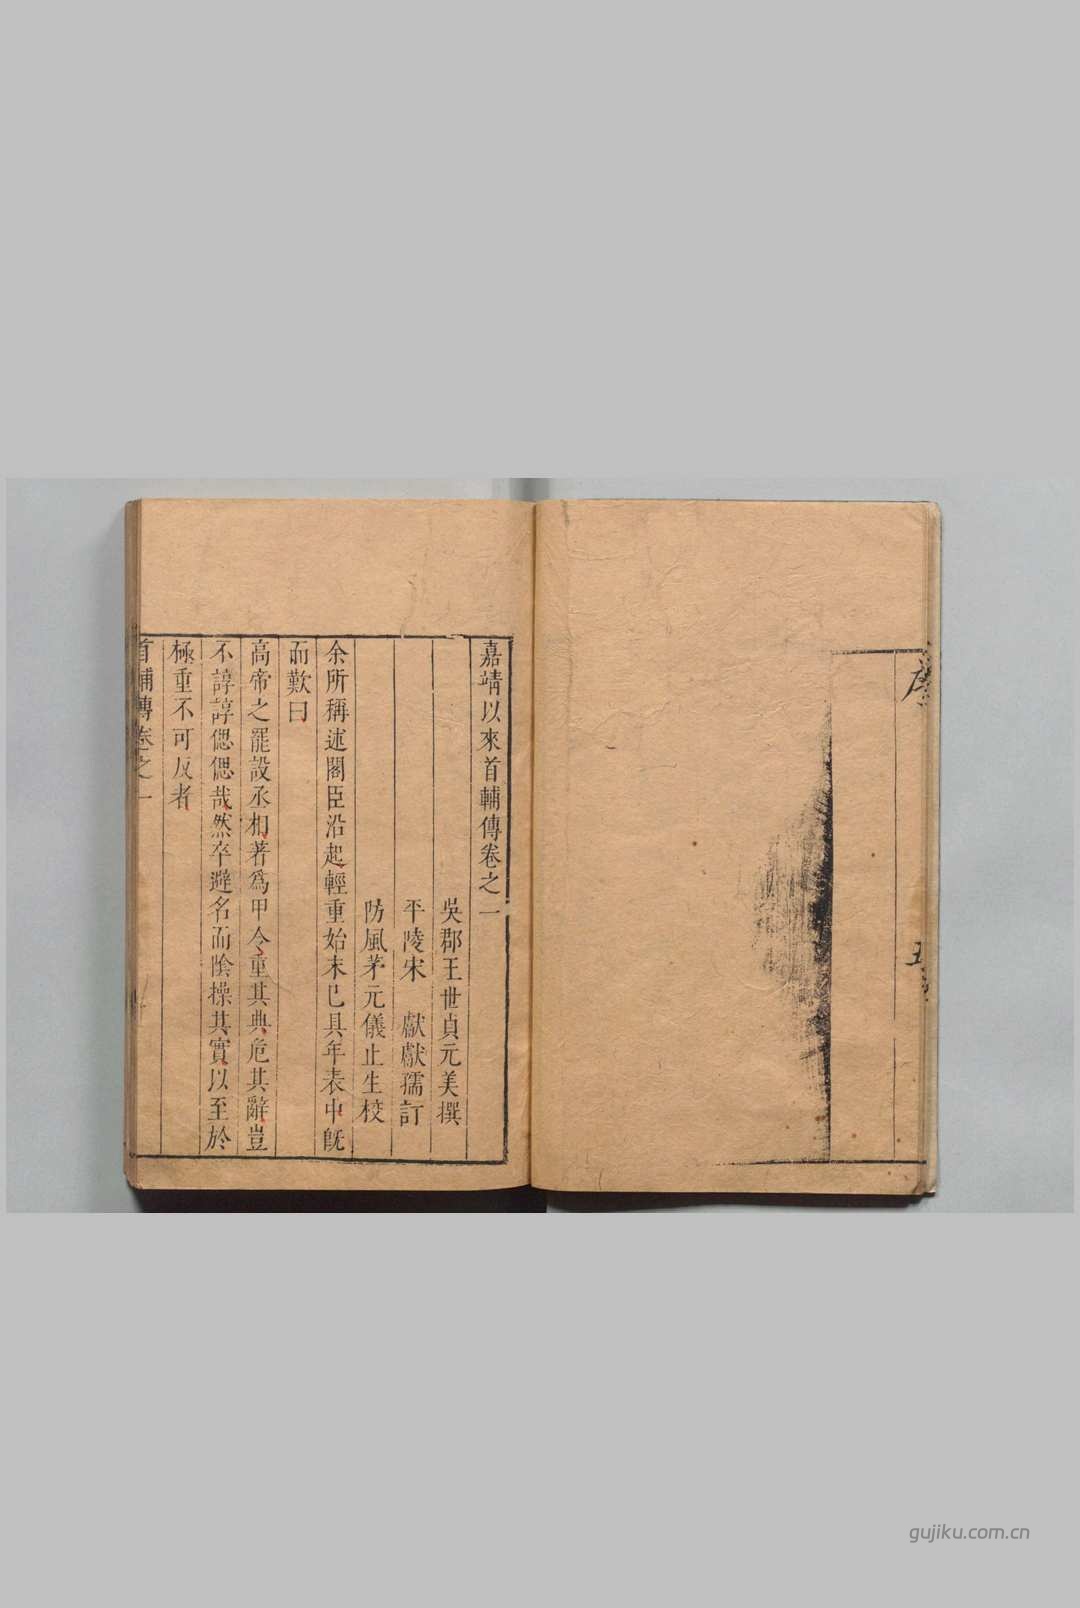 嘉靖以來首輔傳卷之一
吳郡王世貞元美撰
平陵宋　獻獻孺訂
防風茅元儀止生校
余所稱述閣臣沿起輕重始末已具年表中旣
而歎曰
高帝之罷設丞相著爲甲令重其典危其辭豈
不諄諄偲偲哉然卒避名而陰操其實以至於
極重不可反者
首輔傳卷之一
gujiku.com.cn